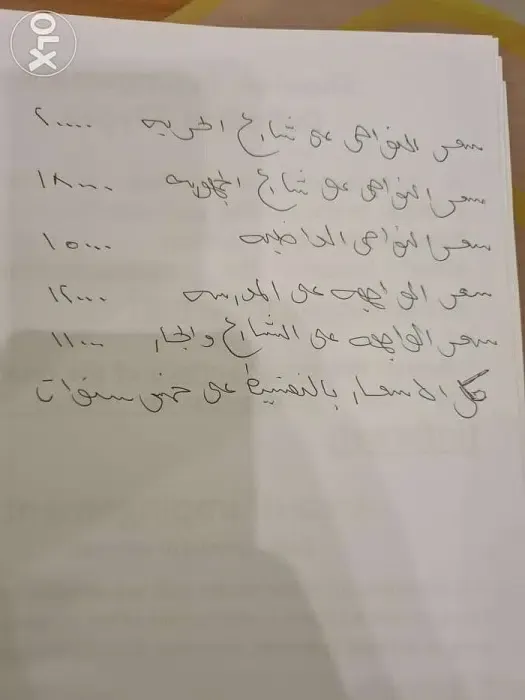 OLX
سعر النواحى على شارع الحريه ٢٠٠٠٠
سعر النواحى على شارع ١٨٠٠٠
سعر النواحى الداخليه ١٥٠٠٠
سعر الواجهه على المدرسه ١٢٠٠٠
سعر الواجهه على الشارع والجار ١١٠٠٠
كل الاسعار بالتقسيط على خمس سنوات